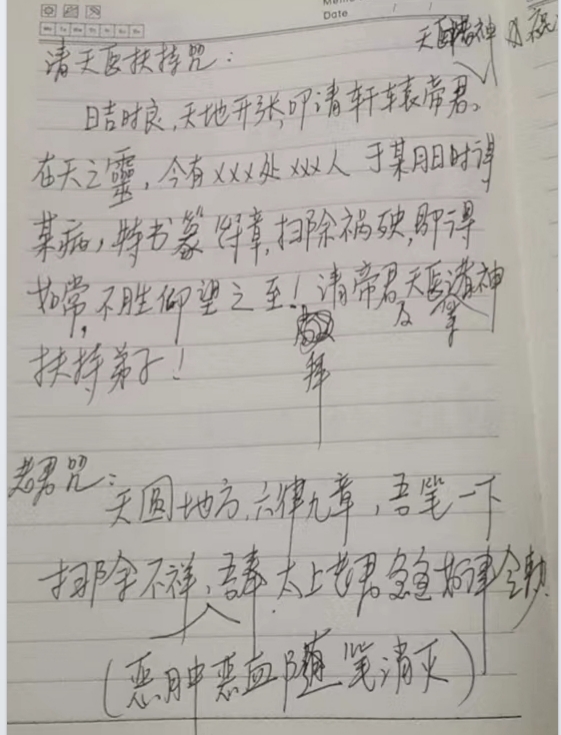 Memo
Date / /
Mo Tu We Th Fr Sa Su
天医诸神
请天医扶持咒：
日吉时良，天地开张，叩请轩辕帝君、
在天之靈，今有xxx处xxx人于某月日时得
某病，特书篆符章，扫除祸殃，即得
如常，不胜仰望之至！请帝君及天医诸神
拜
扶持弟子！
老君咒：
天圆地方，六律九章，吾笔一下
扫除不祥，吾奉太上老君急急如律令勅
（恶肿恶血随笔消灭）